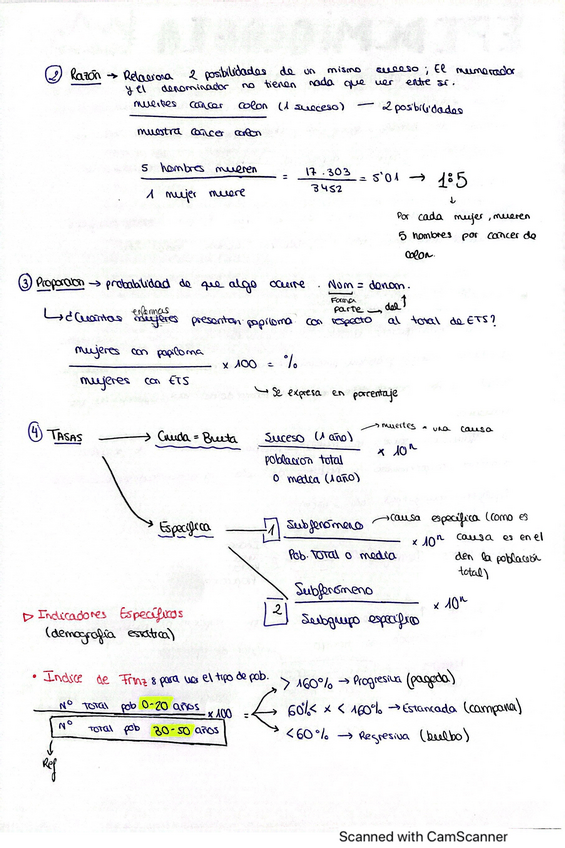 ② Razón → Relaciona 2 posibilidades de un mismo suceso; El numerador
y el denominador no tienen nada que ver entre sí.
muertes cancer colon (1 suceso) — 2 posibilidades
muestra cancer colon
5 hombres mueren = 17.303 = 5'01 → 1:5
1 mujer muere 3452
Por cada mujer, mueren
5 hombres por cancer de
colon.
③ Proporcion → probabilidad de que algo ocurre. Nom = denom.
Forma
parte → del ↑
enfermas
↳ ¿Cuántas mujeres presentan papiloma con respecto al total de ETS?
mujeres con papiloma × 100 = %
mujeres con ETS
↳ Se expresa en porcentaje
④ TASAS → Cruda = Bruta Suceso (1 año) × 10ⁿ → muertes - una causa
población total
o media (1 año)
Específica 1 Subfenómeno × 10ⁿ → causa específica (como es
causa es en el
Pob. TOTAL o media
den la población
total)
2 Subfenómeno × 10ⁿ
Subgrupo específico
▷ Indicadores Específicos
(demografía estática)
• Indice de Frinz 8 para ver el tipo de pob.
Nº TOTAL pob 0-20 años × 100 =
Nº TOTAL pob 30-50 años
> 160% → Progresiva (pagoda)
60% < x < 160% → Estancada (campana)
< 60% → Regresiva (bulbo)
Ref
Scanned with CamScanner